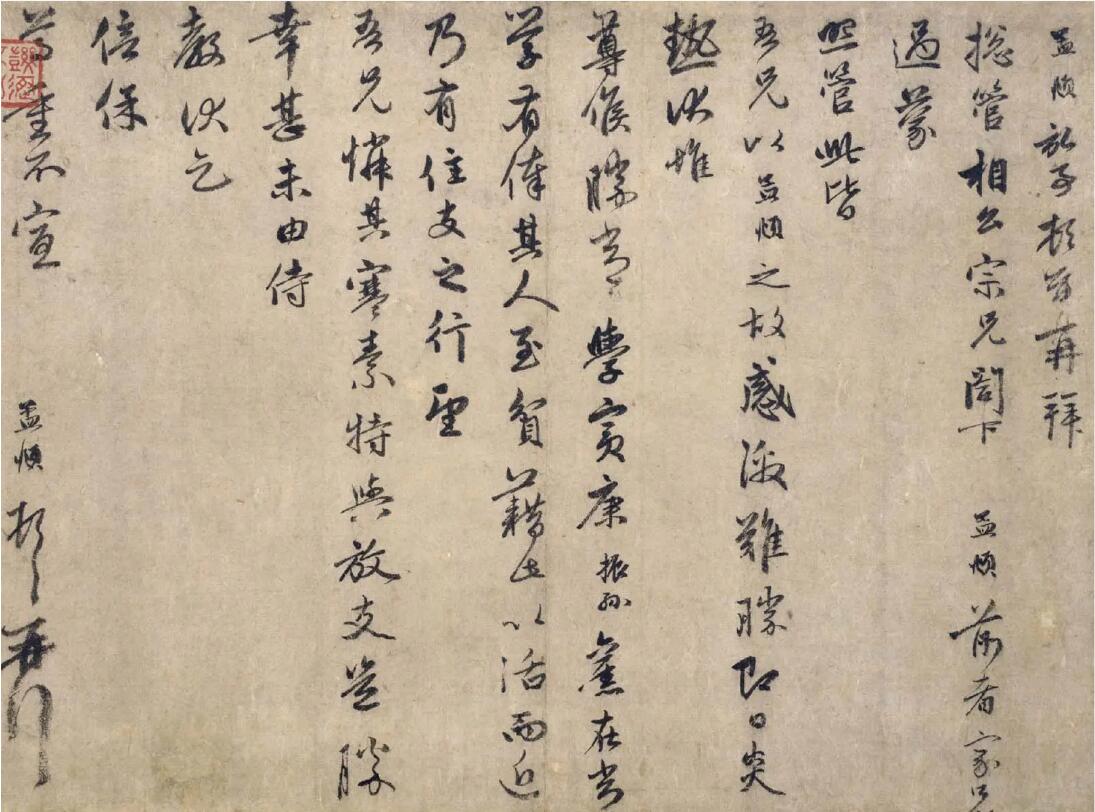 孟頫頓首再拜
總管相公宗兄閤下 孟頫前者家口
過蒙
照管此皆
吾兄以孟頫之故感激難勝即日炎
熱伏惟
尊候勝常 學賓康振孫舊在常
學有俸其人至貧藉此以活而近
乃有住支之行望
吾兄憐其寒素特與放支豈勝
幸甚未由侍
教伏乞
倍保
尊重不宣 孟頫頓首再拜